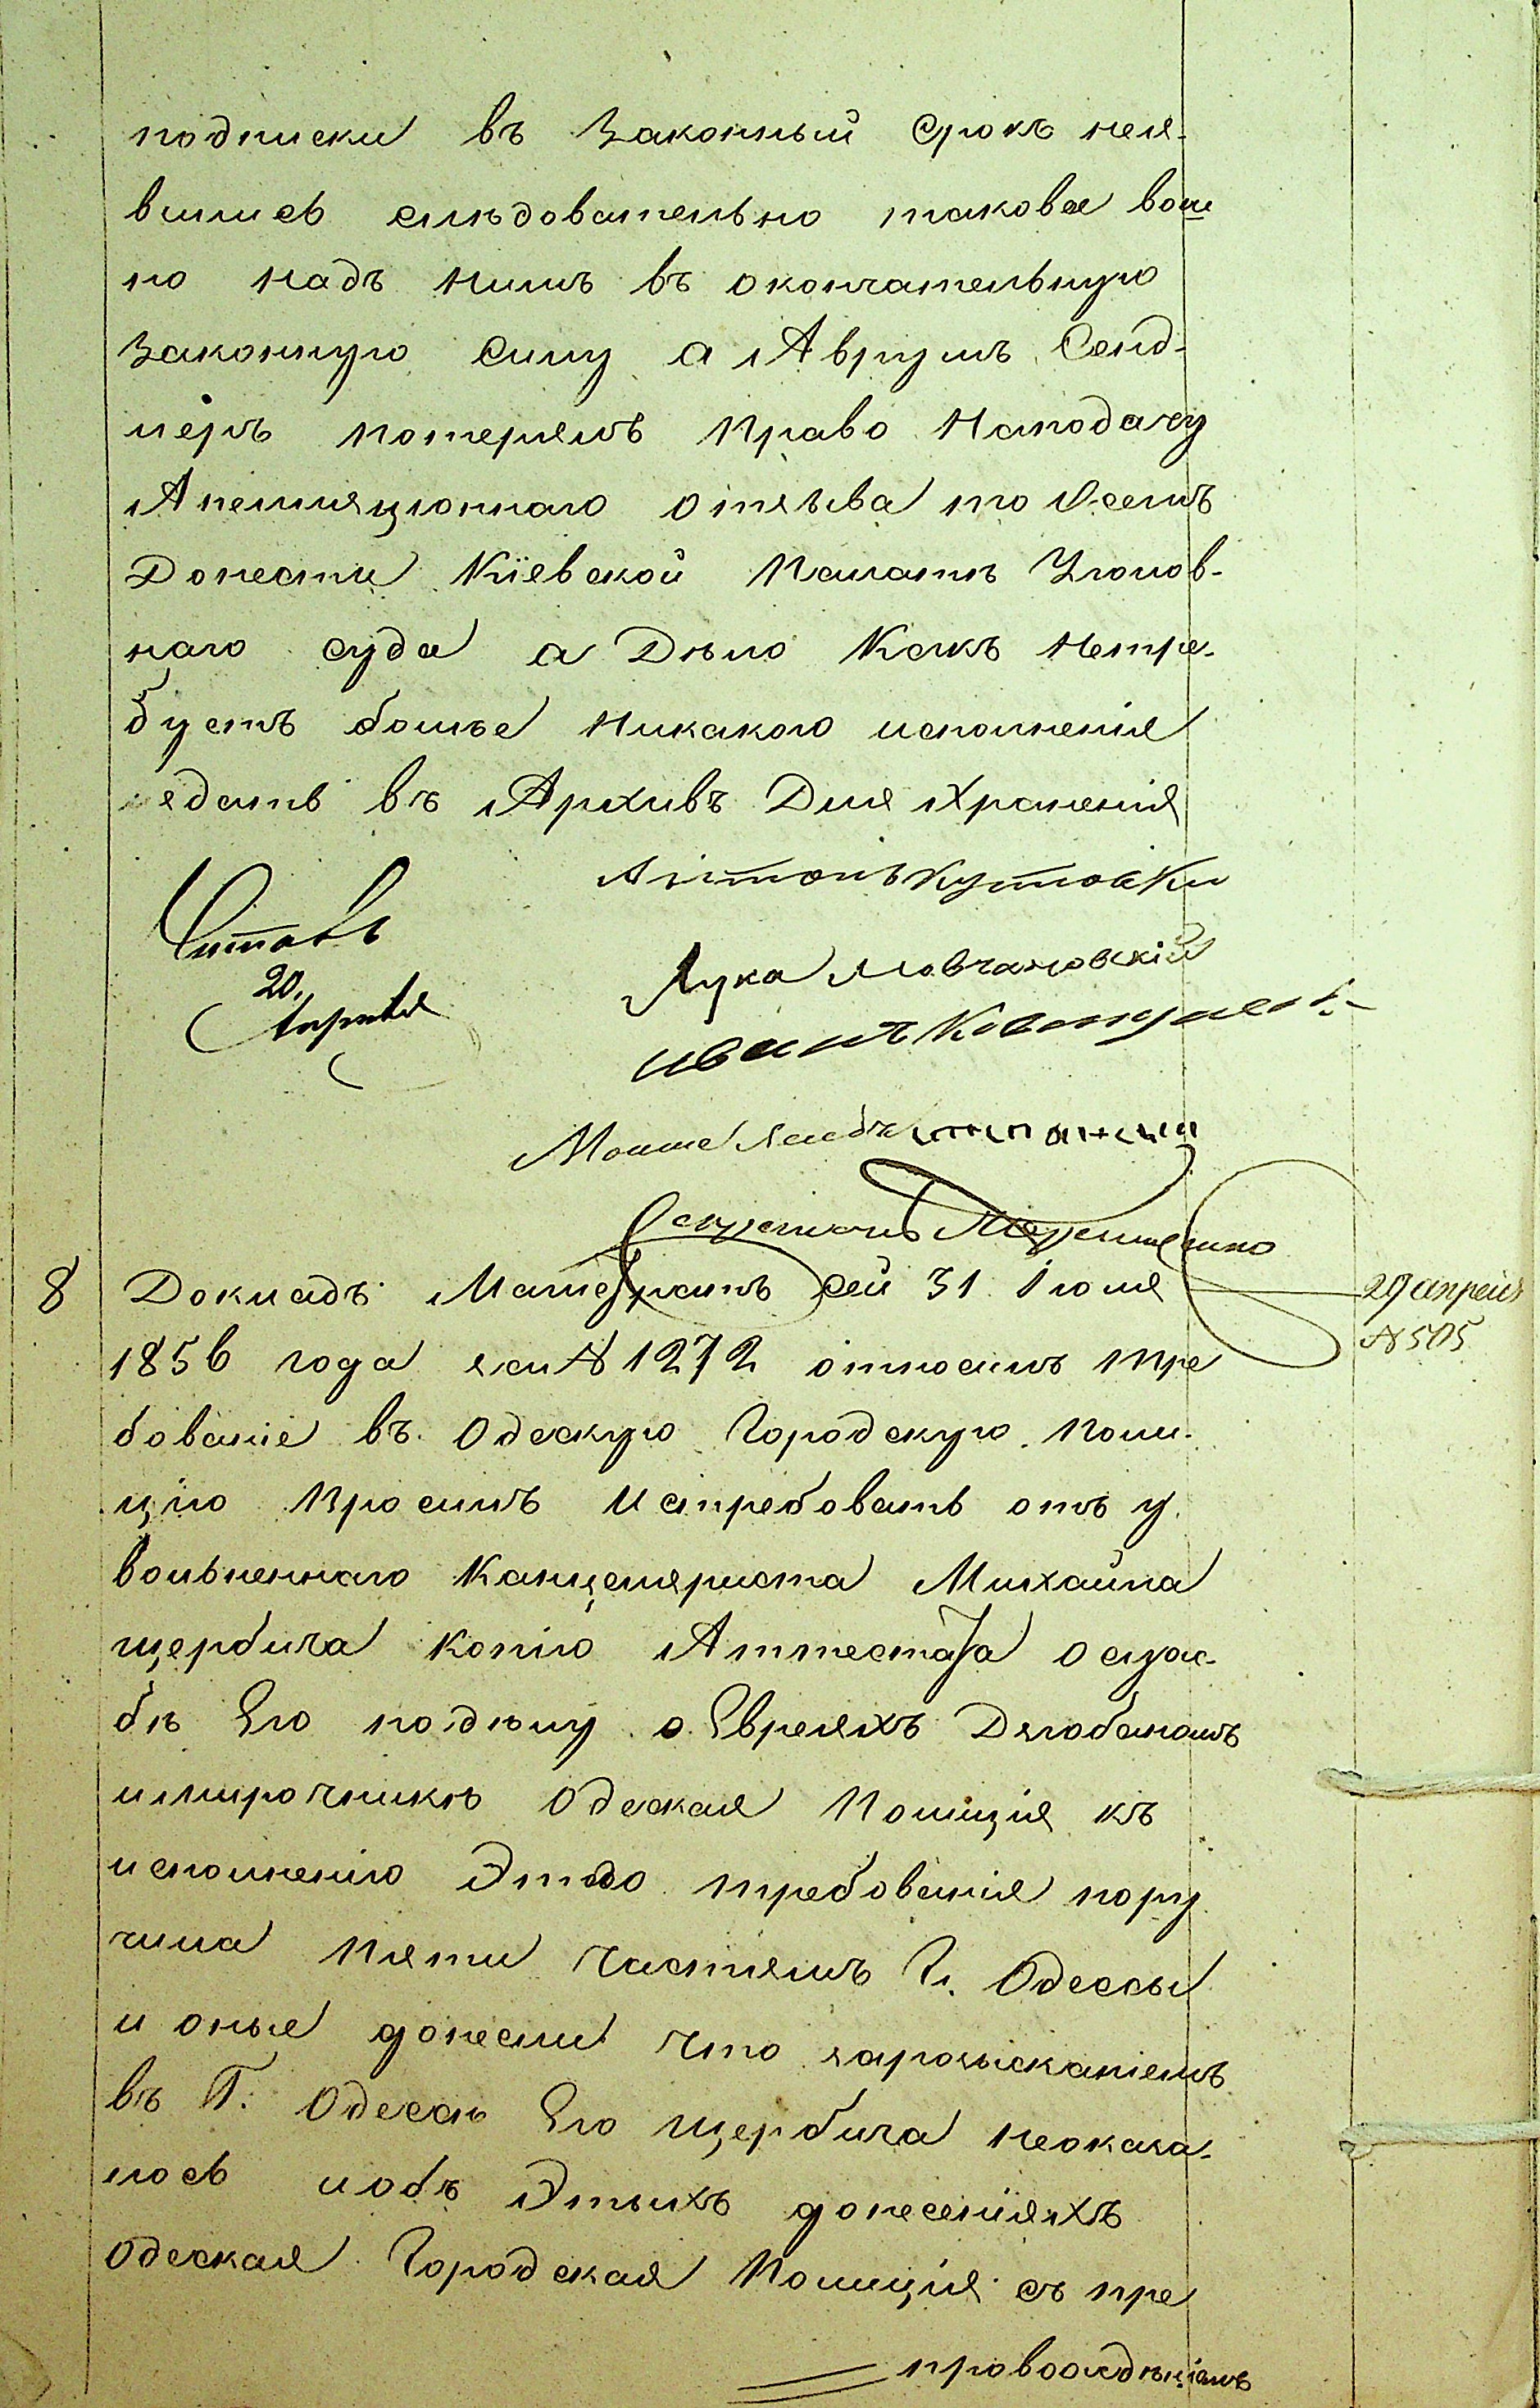 подписки въ Законный срокъ нея-
вился слѣдовательно таковое вош
ло надъ нимъ въ окончательную
Законную силу а Аврумъ Сенд-
леръ потерялъ Право Наподачу
Апелляціоннаго отзыва то О семъ
Донести Кіевской Палатѣ Уголов-
наго суда а Дѣло Какъ Нетре-
буетъ больѣе Никакого исполненія
здать въ Архивъ Для Храненія
Антонъ
Читалъ
20.
Апреля
Лука Мовчановскій
иванъ
Мошке
Секретарь
8 Докладъ: Магистратъ сей 31 Іюля
29 апреля
№ 505
1856 года за № 1272 относилъ тре
бованіе въ Одескую Городскую Поли-
цію Просилъ Истребовать отъ у.
вольненнаго Канцеляриста Михайла
щербича Копію Аттестата о служ-
бѣ Его по дѣлу о Евреяхъ
Одеская Полиція къ
исполненію Этого требованія пору
чила Пяти Частямъ Г. Одессы
и оные донесли что зарозысканіемъ
въ Г. Одессѣ Его щербича Неоказа-
лось иобъ Этыхъ донесеніяхъ
Одеская Городская Полиція съ пре
провоождѣніемъ